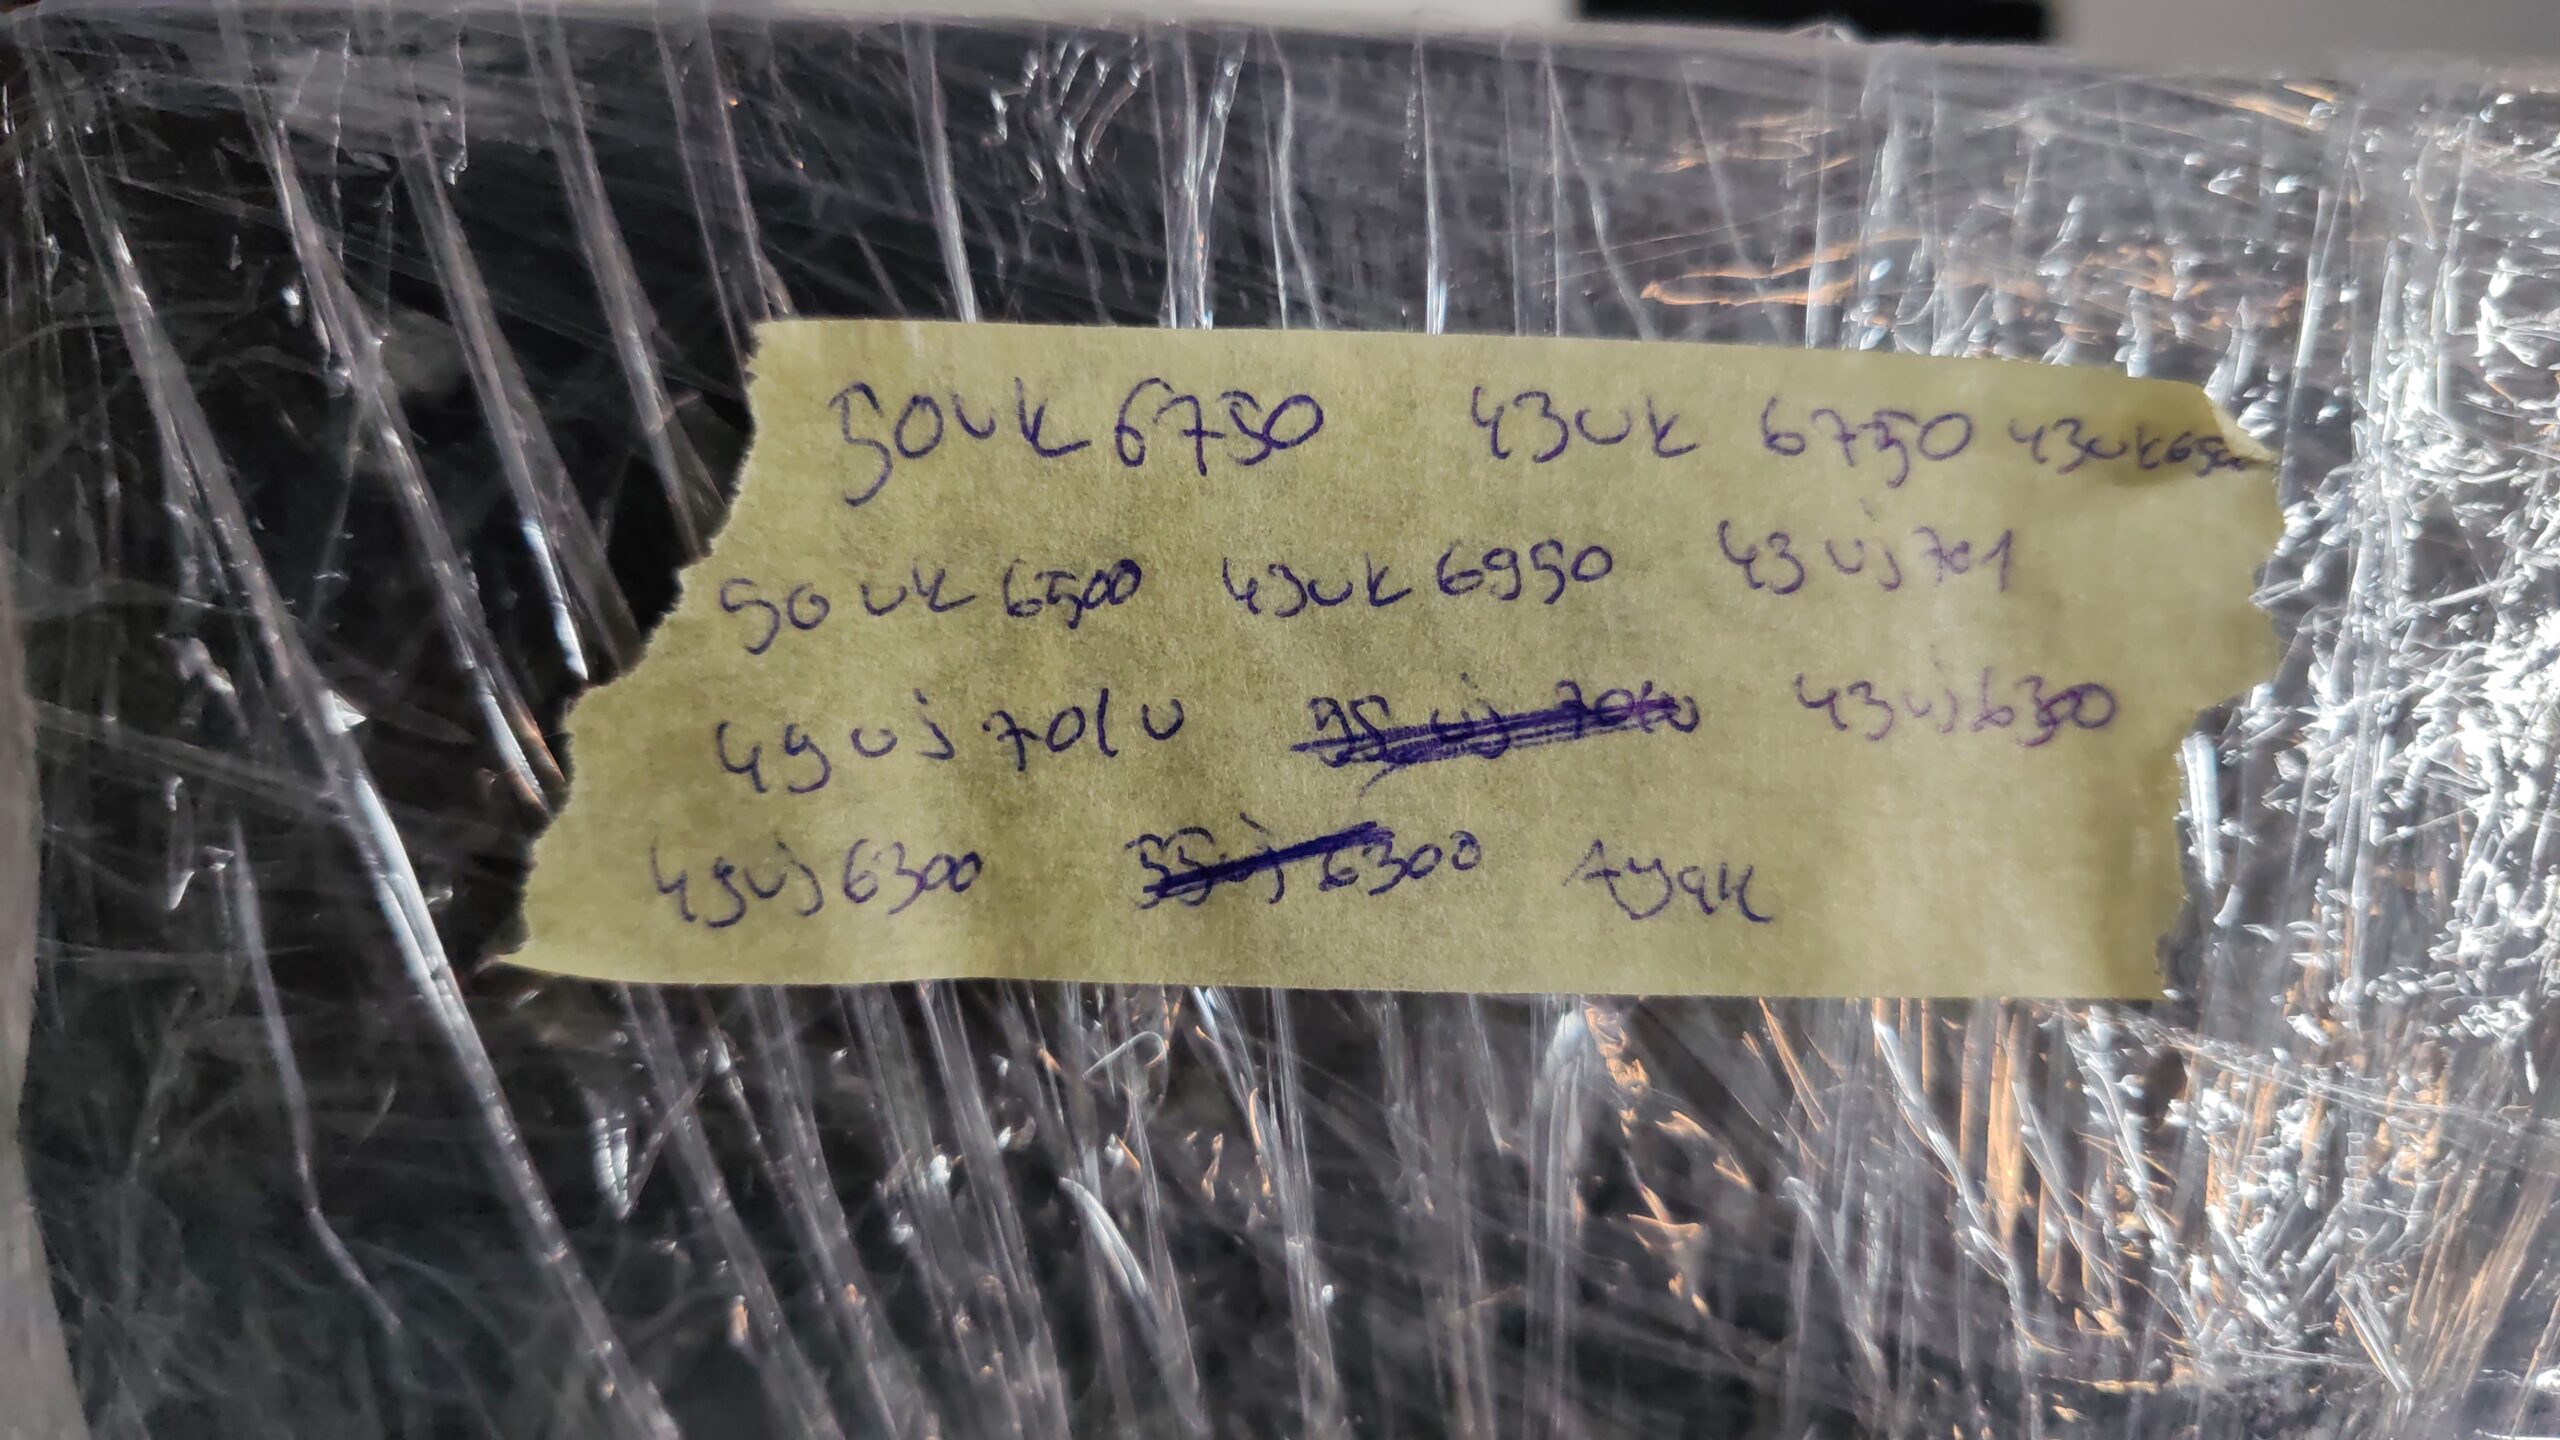 50uk 6750 43uk 6750 43uk65
50 uk 6500 43uk 6950 43 uj 701
49 uj 701u 43uj6300
49uj 6300 55uj 6300 Ayak